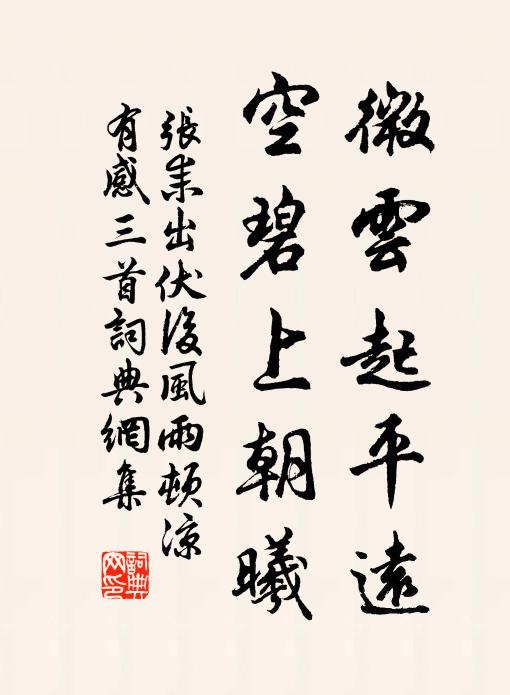 微雲起平遠
空碧上朝曦
張耒出伏後風雨頓涼
有感三首詞典網集
詞典网印